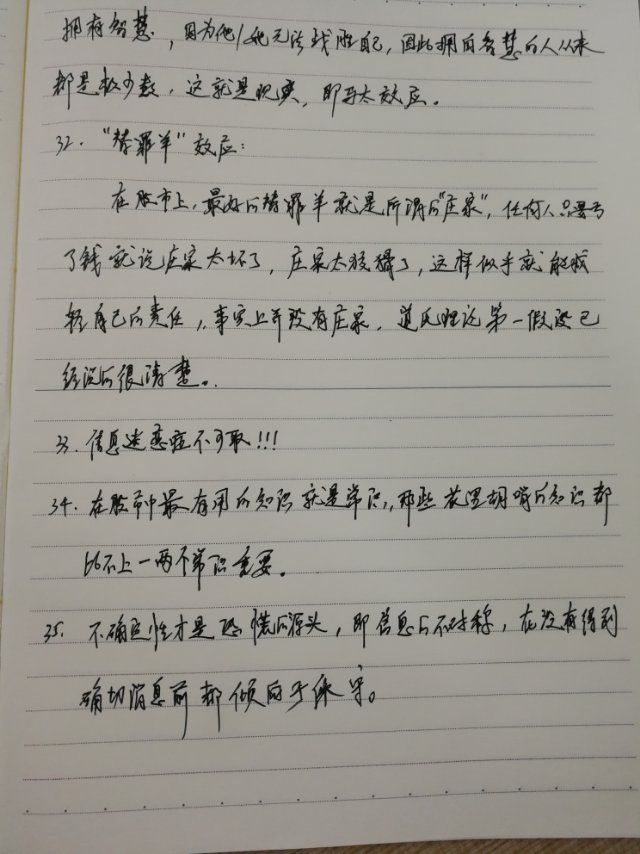 拥有智慧，因为他/她无法战胜自己，因此拥有智慧的人从来
都是极少数，这就是现实，即马太效应。
32. “替罪羊”效应：
在股市上，最好的替罪羊就是所谓的“庄家”，任何人只要亏
了钱就说庄家太坏了，庄家太狡猾了，这样似乎就能减
轻自己的责任，事实上并没有庄家，道氏理论第一假设已
经说的很清楚。
33. 信息迷恋症不可取!!!
34. 在股市中最有用的知识就是常识，那些花里胡哨的知识都
比不上一两个常识重要。
35. 不确定性才是恐慌的源头，即信息的不对称，在没有得到
确切消息前都倾向于保守。